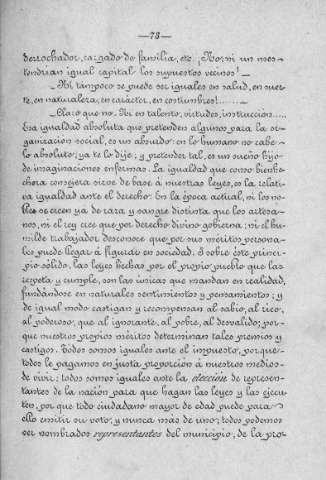 — 78 —
derrochador, cargado de familia, etc. ¡Nor ni un mes tendrian igual capital los supuestos vecinos! —
— Ni tampoco se puede ser iguales en salud, en suerte, en naturaleza, en carácter, en costumbres!......—
— Claro que no. Ni en talento, virtudes, instruccion.....
Esa igualdad absoluta que pretenden algunos para la organizacion social, es un absurdo: en lo humano no cabe lo absoluto; ya te lo dije; y pretender tal, es un sueño hijo de imaginaciones enfermas. La igualdad que como bienhechora consejera sirve de base á nuestras leyes, es la relativa igualdad ante el derecho. En la época actual, ni los nobles se creen ya de raza y sangre distinta que los artesanos, ni el rey cree que por derecho divino gobierna; ni el humilde trabajador desconoce que por sus méritos personales puede llegar á figurar en sociedad. Y sobre este principio sólido, las leyes hechas por el propio pueblo que las respeta y cumple, son las únicas que mandan en realidad, fundándose en naturales sentimientos y pensamientos; y de igual modo castigan y recompensan al sabio, al rico, al poderoso, que al ignorante, al pobre, al desvalido; porque nuestros propios méritos determinan tales premios y castigos. Todos somos iguales ante el impuesto, porque todos le pagamos en justa proporción á nuestros medios de vivir: todos somos iguales ante la eleccion de representantes de la nación para que hagan las leyes y las ejecuten, por que todo ciudadano mayor de edad puede para ello emitir su voto, y nunca más de uno; todos podemos ser nombrados representantes del municipio, de la pro-